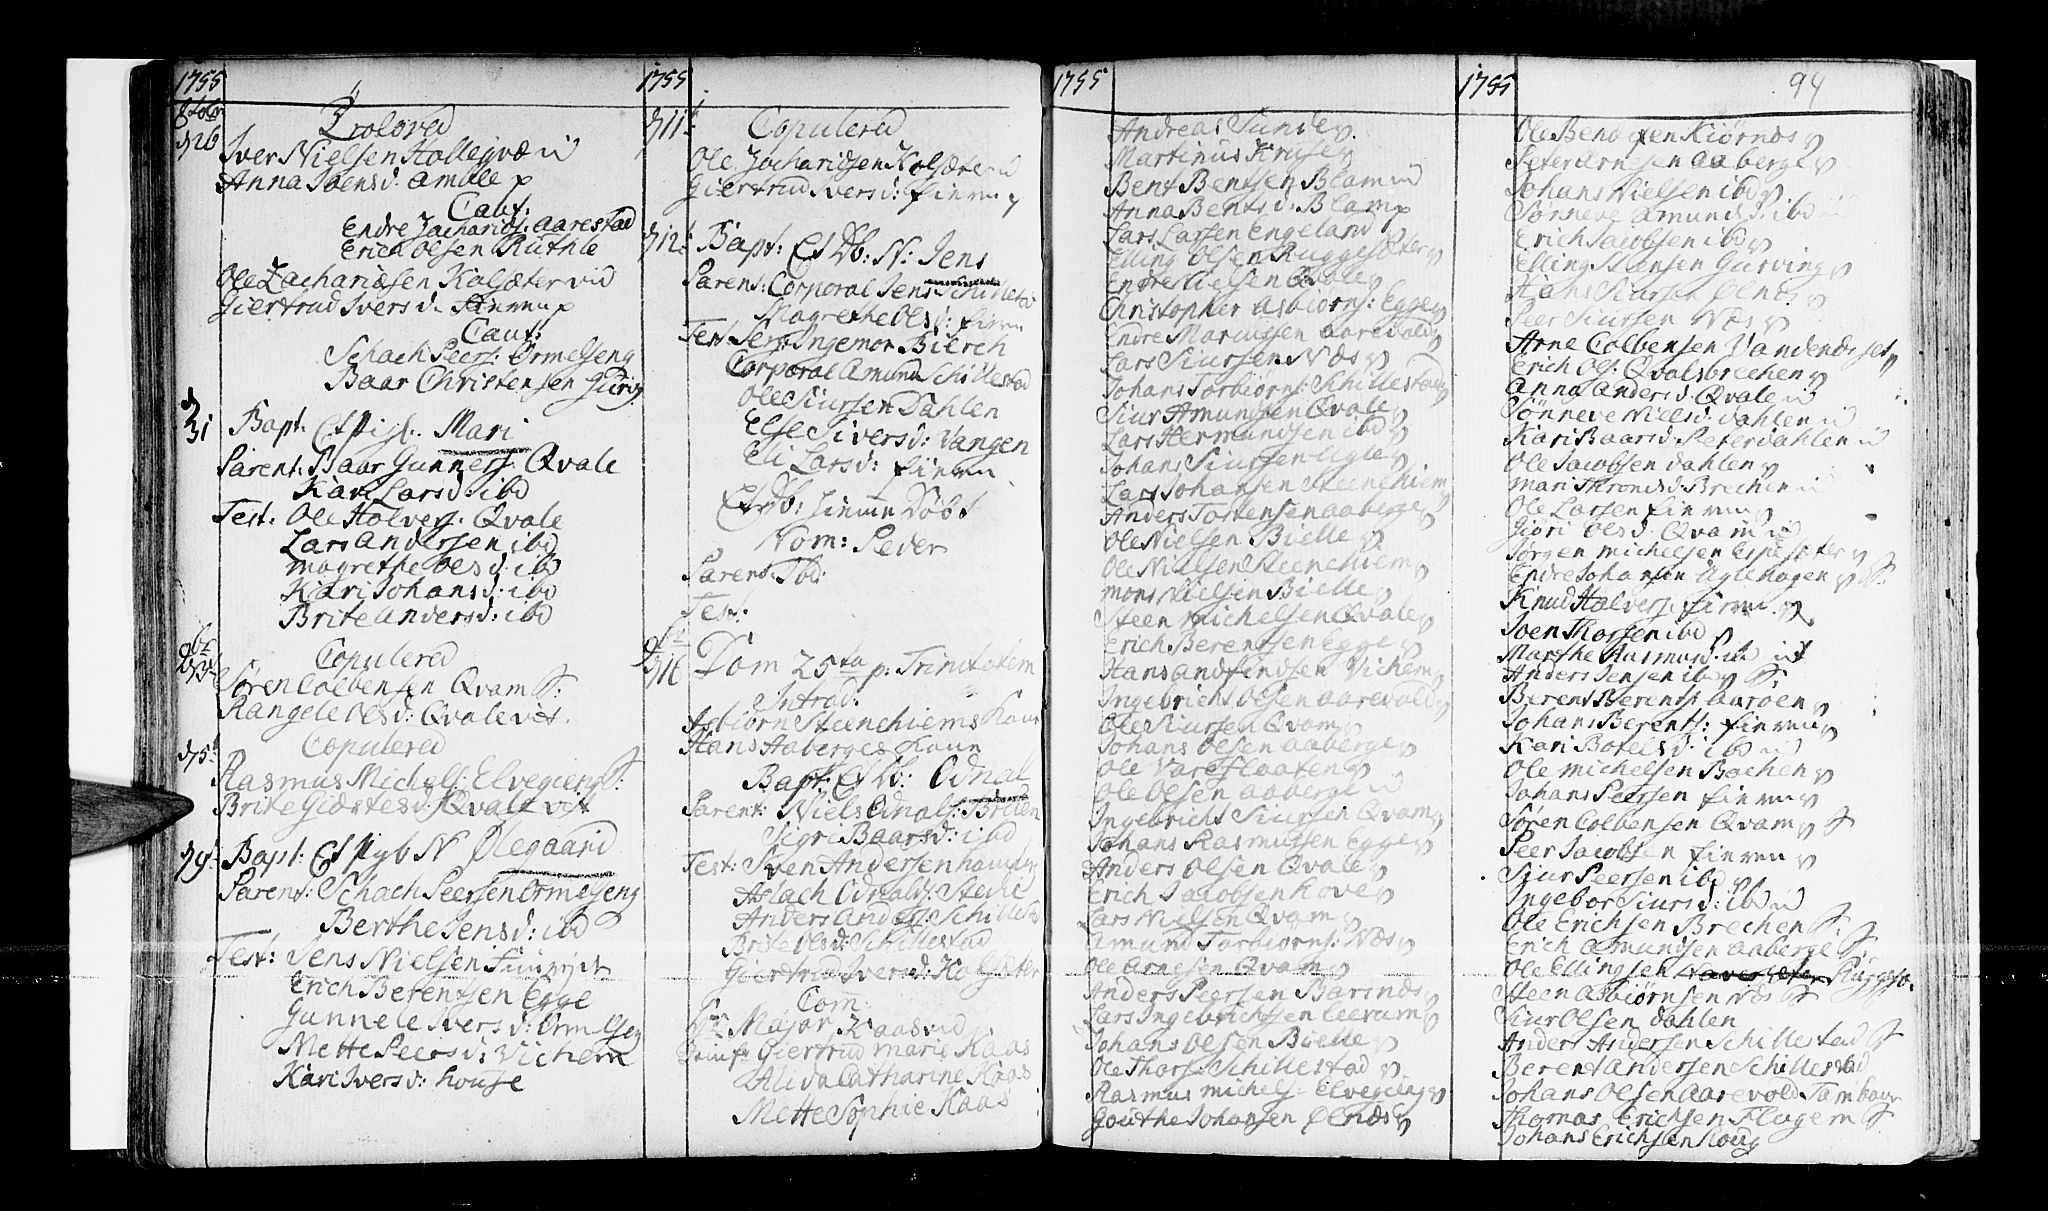 1755
8tobr
d 26
Troloved
Iver Nielsen Hallegvæ u
Anna Joensd: Amble p
Caut:
Endre Zacharids: Aarestad
Erich Olsen Rutle
Ole Zachariæsen Kalsæter vid
Giertrud Ivers d. Finnen p
Caut:
Schach Peers: Ormelseng
Baar Christensen Gurig
d 31
Bapt: Et Pigb. Mari
Parent: Baar Gunners: Qvale
Kari Lars d: ibd
Test: Ole Halvers: Qvale
Lars Andersen ibd
Magrethe Oles d: ibd
Kari Johans d: ibd
Brite Anders d: ibd
9br
Copulered
Sören Colbensen Qvam S:
Rangele Oles d: Qvale vet.
d 5t
Copulered
Rasmus Michels: Elvegieng S:
Brite Giæstes d: Qvale vet
d 9
Bapt: Et Pigb N Ølegaard
Parent: Schach Peersen Ormelseng
Berthe Jens d: ibd
Test: Jens Nielsen
Erich Berentsen Egge
Gunnele Ivers d: Ormelseng
Mette Peers d: Vichem
Kari Ivers d: house
1755
d 11t
Copulered
Ole Zachariæsen Kalsæter u
Giertrud Ivers d: Finnen p
d 12t
Bapt: Et Db: N: Jens
Parent: Corporal Jens Schillesta
Magrethe Oles d: Finnen
Test: Serg: Ingemor Bierch
Corporal Amund Schillestad
Ole Siursen Dahlen
Else Sivers d: Vangen
Eli Lars d: Finnen
Et Db: hiemme Döbt
Nom: Peder
Parent: Ibd:
Test:
d 16
Dom 25ta p: Trinitatem
Introd:
Asbiörn Steenchiems Kone
Hans Aaberges Kone
Bapt: Et Db: Odnal
Parent: Niels Odnals: Broten
Sigri Baars d: ibd
Test: Sven Andersen
Aslach Odnals: Stedie
Anders Anders: Schillestad
Brite Oles d: Schillestad
Giertrud Ivers d: Kalsæter
Com:
Hr Major Kaas vid
Giertrud Marie Kaas
Alida Catharine Kaas
Mette Sophie Kaas
1755
Andreas Sunde y.
Martinus Kruse y
Bent Bentsen Blam u
Anna Bents d: Blam p
Lars Larsen Engeland y
Elling Olsen Ruggesæter y
Endre Nielsen Qvale y
Christopher Asbiörns: Egge y
Endre Marcussen Aarevold y
Lars Siursen Næs y
Johans Torbiörns: Schillestad y
Siur Amunsen Qvale y
Lars Hermundsen ibd y
Johans Siursen Ugle y
Lars Johansen Steenchiem y
Anders Tostensen Aaberge y
Ole Nielsen Bielle y
Ole Nielsen Steenchiem y
Mons Nielsen Bielle y
Steen Michelsen Qvale y
Erich Berentsen Egge y
Hans Andfindsen Vichem y
Ingebricht Olsen Aarevold y
Ole Siursen Qvam y
Johans Olsen Aaberge y
Ole Vareflaaten y
Ole Olsen Aaberge u
Ingebricht Siursen Qvam y
Johans Rasmussen Egge y
Anders Olsen Qvale y
Erich Jacobsen Hove y
Lars Nielsen Qvam y
Amund Torbiörns: Næs y
Ole Arnesen Qvam y
Anders Peersen Barsnæs y
Lars Ingebrichtsen Leerum y
Johans Olsen Bielle y
Ole Thors: Schillestad y
Rasmus Michels: Elvegieng y
Gouthe Johansen Ølnæs y
1755
94
Ole Bendixen Kiörnæs y
Peter Arnesen Aaberge y
Johans Nielsen ibd y
Sönneve Amunds d: ibd u
Erich Jacobsen ibd y
Elling Steensen Gurving y
Hans Siursen Ølnæs y
Peer Siursen Næs y
Arne Colbensen Vandenæsset y
Erich Ols: Qvalsbrechen y
Anna Anders d: Qvale u
Sönneve Niels d: Dahlen u
Kari Baars d: Peterdahlen u
Ole Jacobsen Dahlen y
Mari Thrones d: Brechen u
Ole Larsen Finnen y
Giöri Oles d: Qvam u
Jörgen Michelsen Espesæter y
Endre Johansen Uglehagen y S.
Knud Halvers: Finnen y
Joen Thorsen ibd y
Marthe Rasmus d: ibd ut
Anders Jensen ibd y S.
Berent Berents: Aaröen y
Johans Berents: Finnen y
Kari Botels d: ibd u
Ole Michelsen Bachen y
Johans Peersen Finnen y
Sören Colbensen Qvam y S
Peer Jacobsen Finnen y
Siur Peersen ibd y
Ingebor Siurs d: ibd u
Ole Erichsen Brechen S
Erich Amundsen Aaberge S
Ole Ellingsen Ruggesæ.
Steen Asbiörnsen Næs S
Siur Olsen Dahlen
Anders Andersen Schillestad S
Berent Andersen Schillestad
Johans Olsen Aarevold Tambour
Thomas Erichsen Flugem S
Johans Erichsen Houg